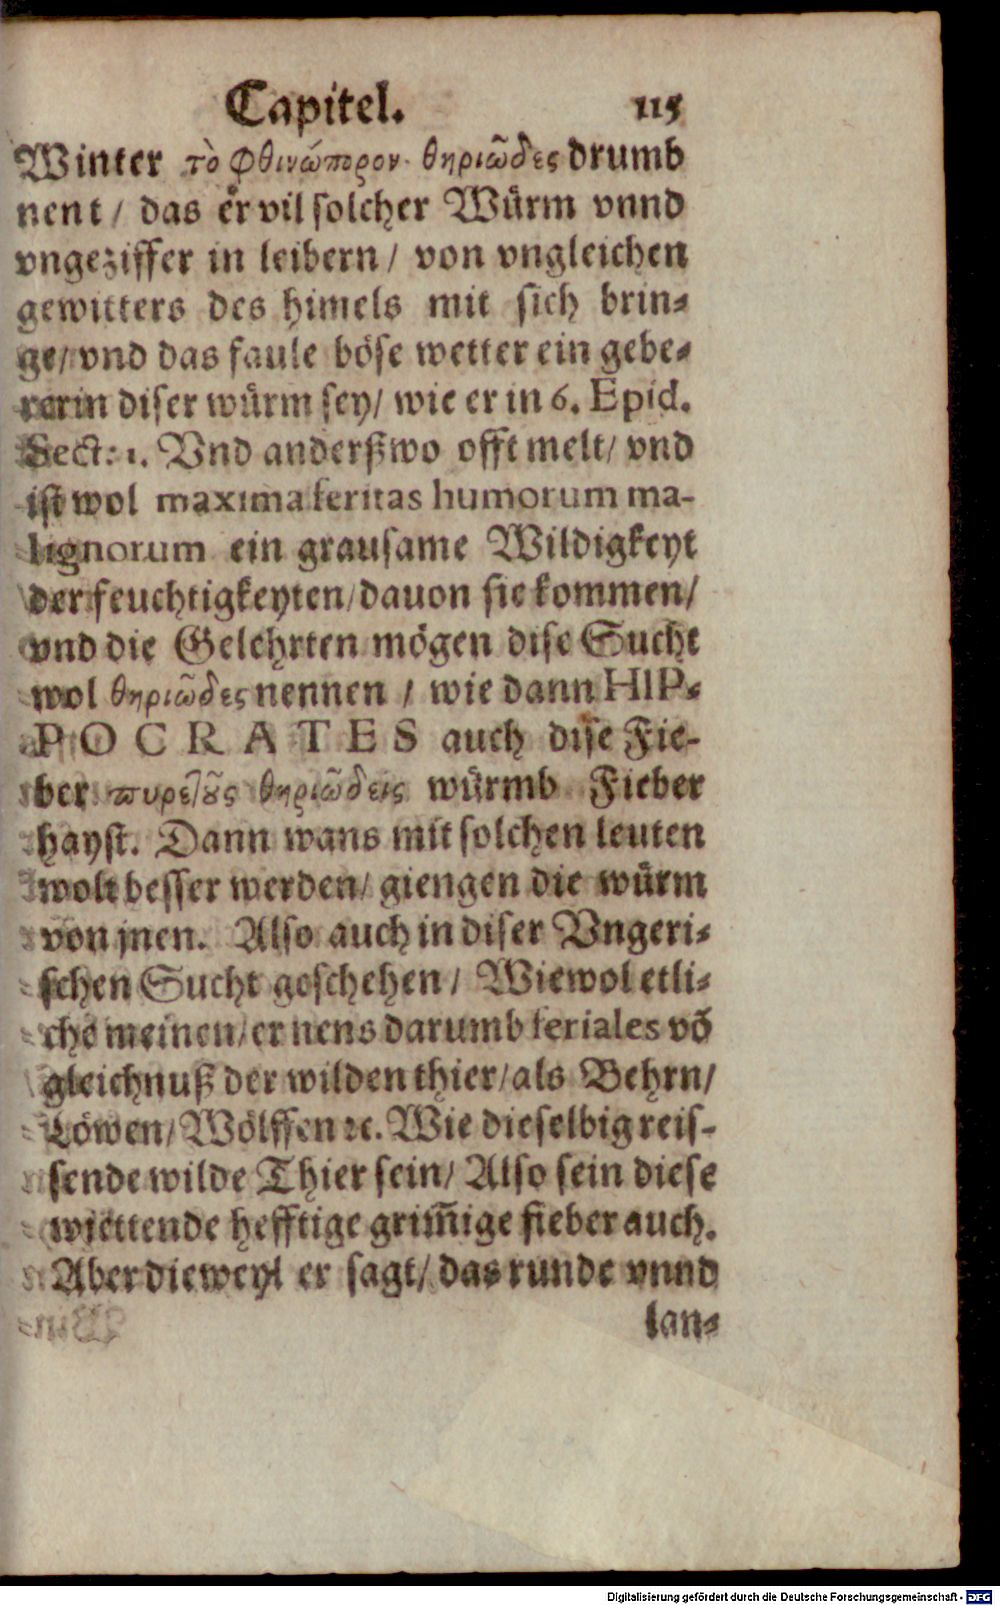 Capitel. 115
Winter τὸ φθινώπορον θηριῶδες drumb
nent / das er vil solcher Würm vnnd
vngeziffer in leibern / von vngleichen
gewitters des himels mit sich brin⸗
ge/ vnd das faule böse wetter ein gebe⸗
rerin diser würm sey/ wie er in 6. Epid.
Sect: 1. Vnd anderßwo offt melt/ vnd
ist wol maxima feritas humorum ma-
lignorum ein grausame Wildigkeyt
der feuchtigkeyten/ dauon sie kommen/
vnd die Gelehrten mögen dise Sucht
wol θηριῶδες nennen / wie dann HIP⸗
POCRATES auch dise Fie-
ber πυρετȣ̀ς θηριῶδεις würmb Fieber
hayst. Dann wans mit solchen leuten
wolt besser werden/ giengen die würm
von jnen. Also auch in diser Vngeri⸗
schen Sucht geschehen / Wiewol etli⸗
che meinen/ er nens darumb feriales võ
gleichnuß der wilden thier/ als Behrn/
Löwen/ Wölffen ꝛc. Wie dieselbig reis-
sende wilde Thier sein/ Also sein diese
wiettende hefftige grim̃ige fieber auch.
Aber dieweyl er sagt/ das runde vnnd
lan⸗
Digitalisierung gefördert durch die Deutsche Forschungsgemeinschaft - DFG